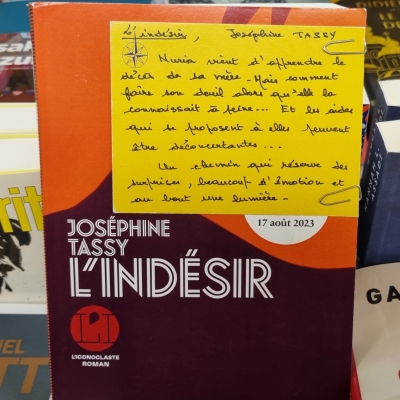 L'indésir, Joséphine TASSY
Nuria vient d'apprendre le
décès de sa mère. Mais comment
faire son deuil alors qu'elle la
connaissait à peine... Et les aides
qui se proposent à elles peuvent
être déconcertantes...
Un chemin qui réserve des
surprises, beaucoup d'émotion et
au bout une lumière.
17 août 2023
JOSÉPHINE
TASSY
L'INDÉSIR
LI
L'ICONOCLASTE
ROMAN
GA